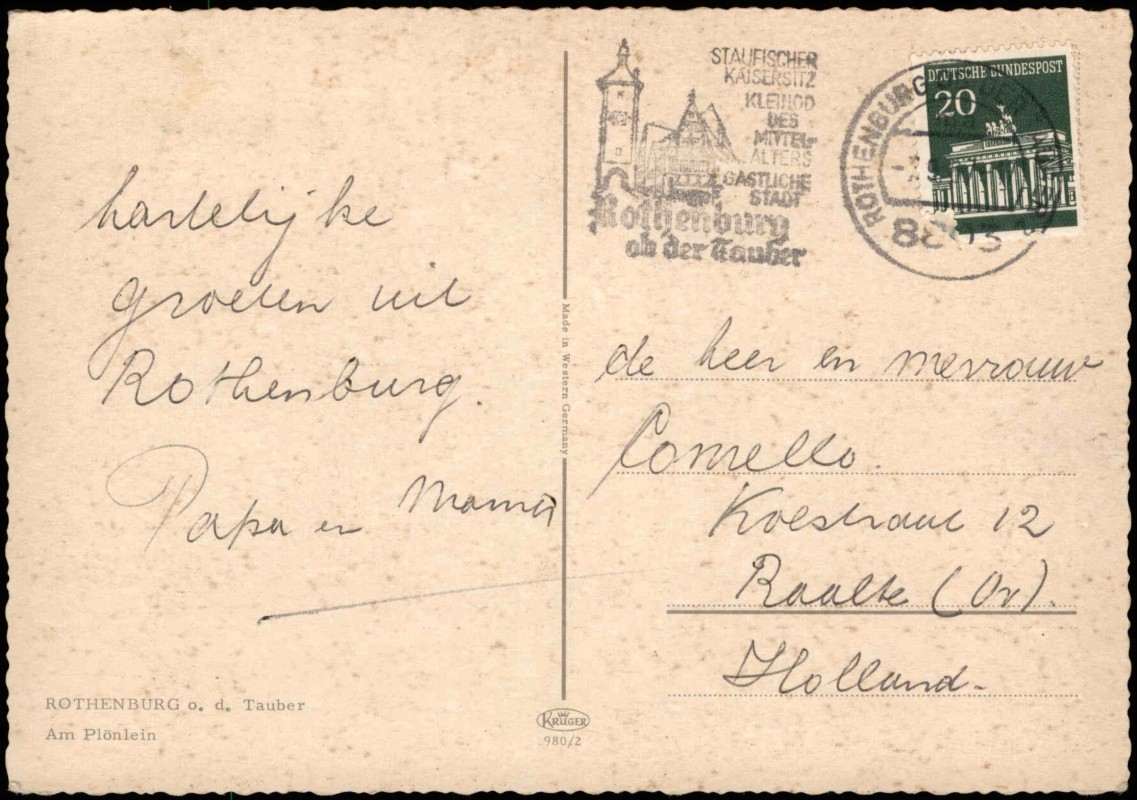 hartelijke
groeten uit
Rothenburg.
Papa en Mama
ROTHENBURG o. d. Tauber
Am Plönlein
Made in Western Germany
KRÜGER
980/2
STAUFISCHER
KAISERSITZ
KLEINOD
DES
MITTEL-
ALTERS
GASTLICHE
STADT
Rothenburg
ob der Tauber
ROTHENBURG OB DER TAUBER
8803
DEUTSCHE BUNDESPOST
20
de heer en mevrouw
Comello.
12
Raalte (Ov).
Holland.